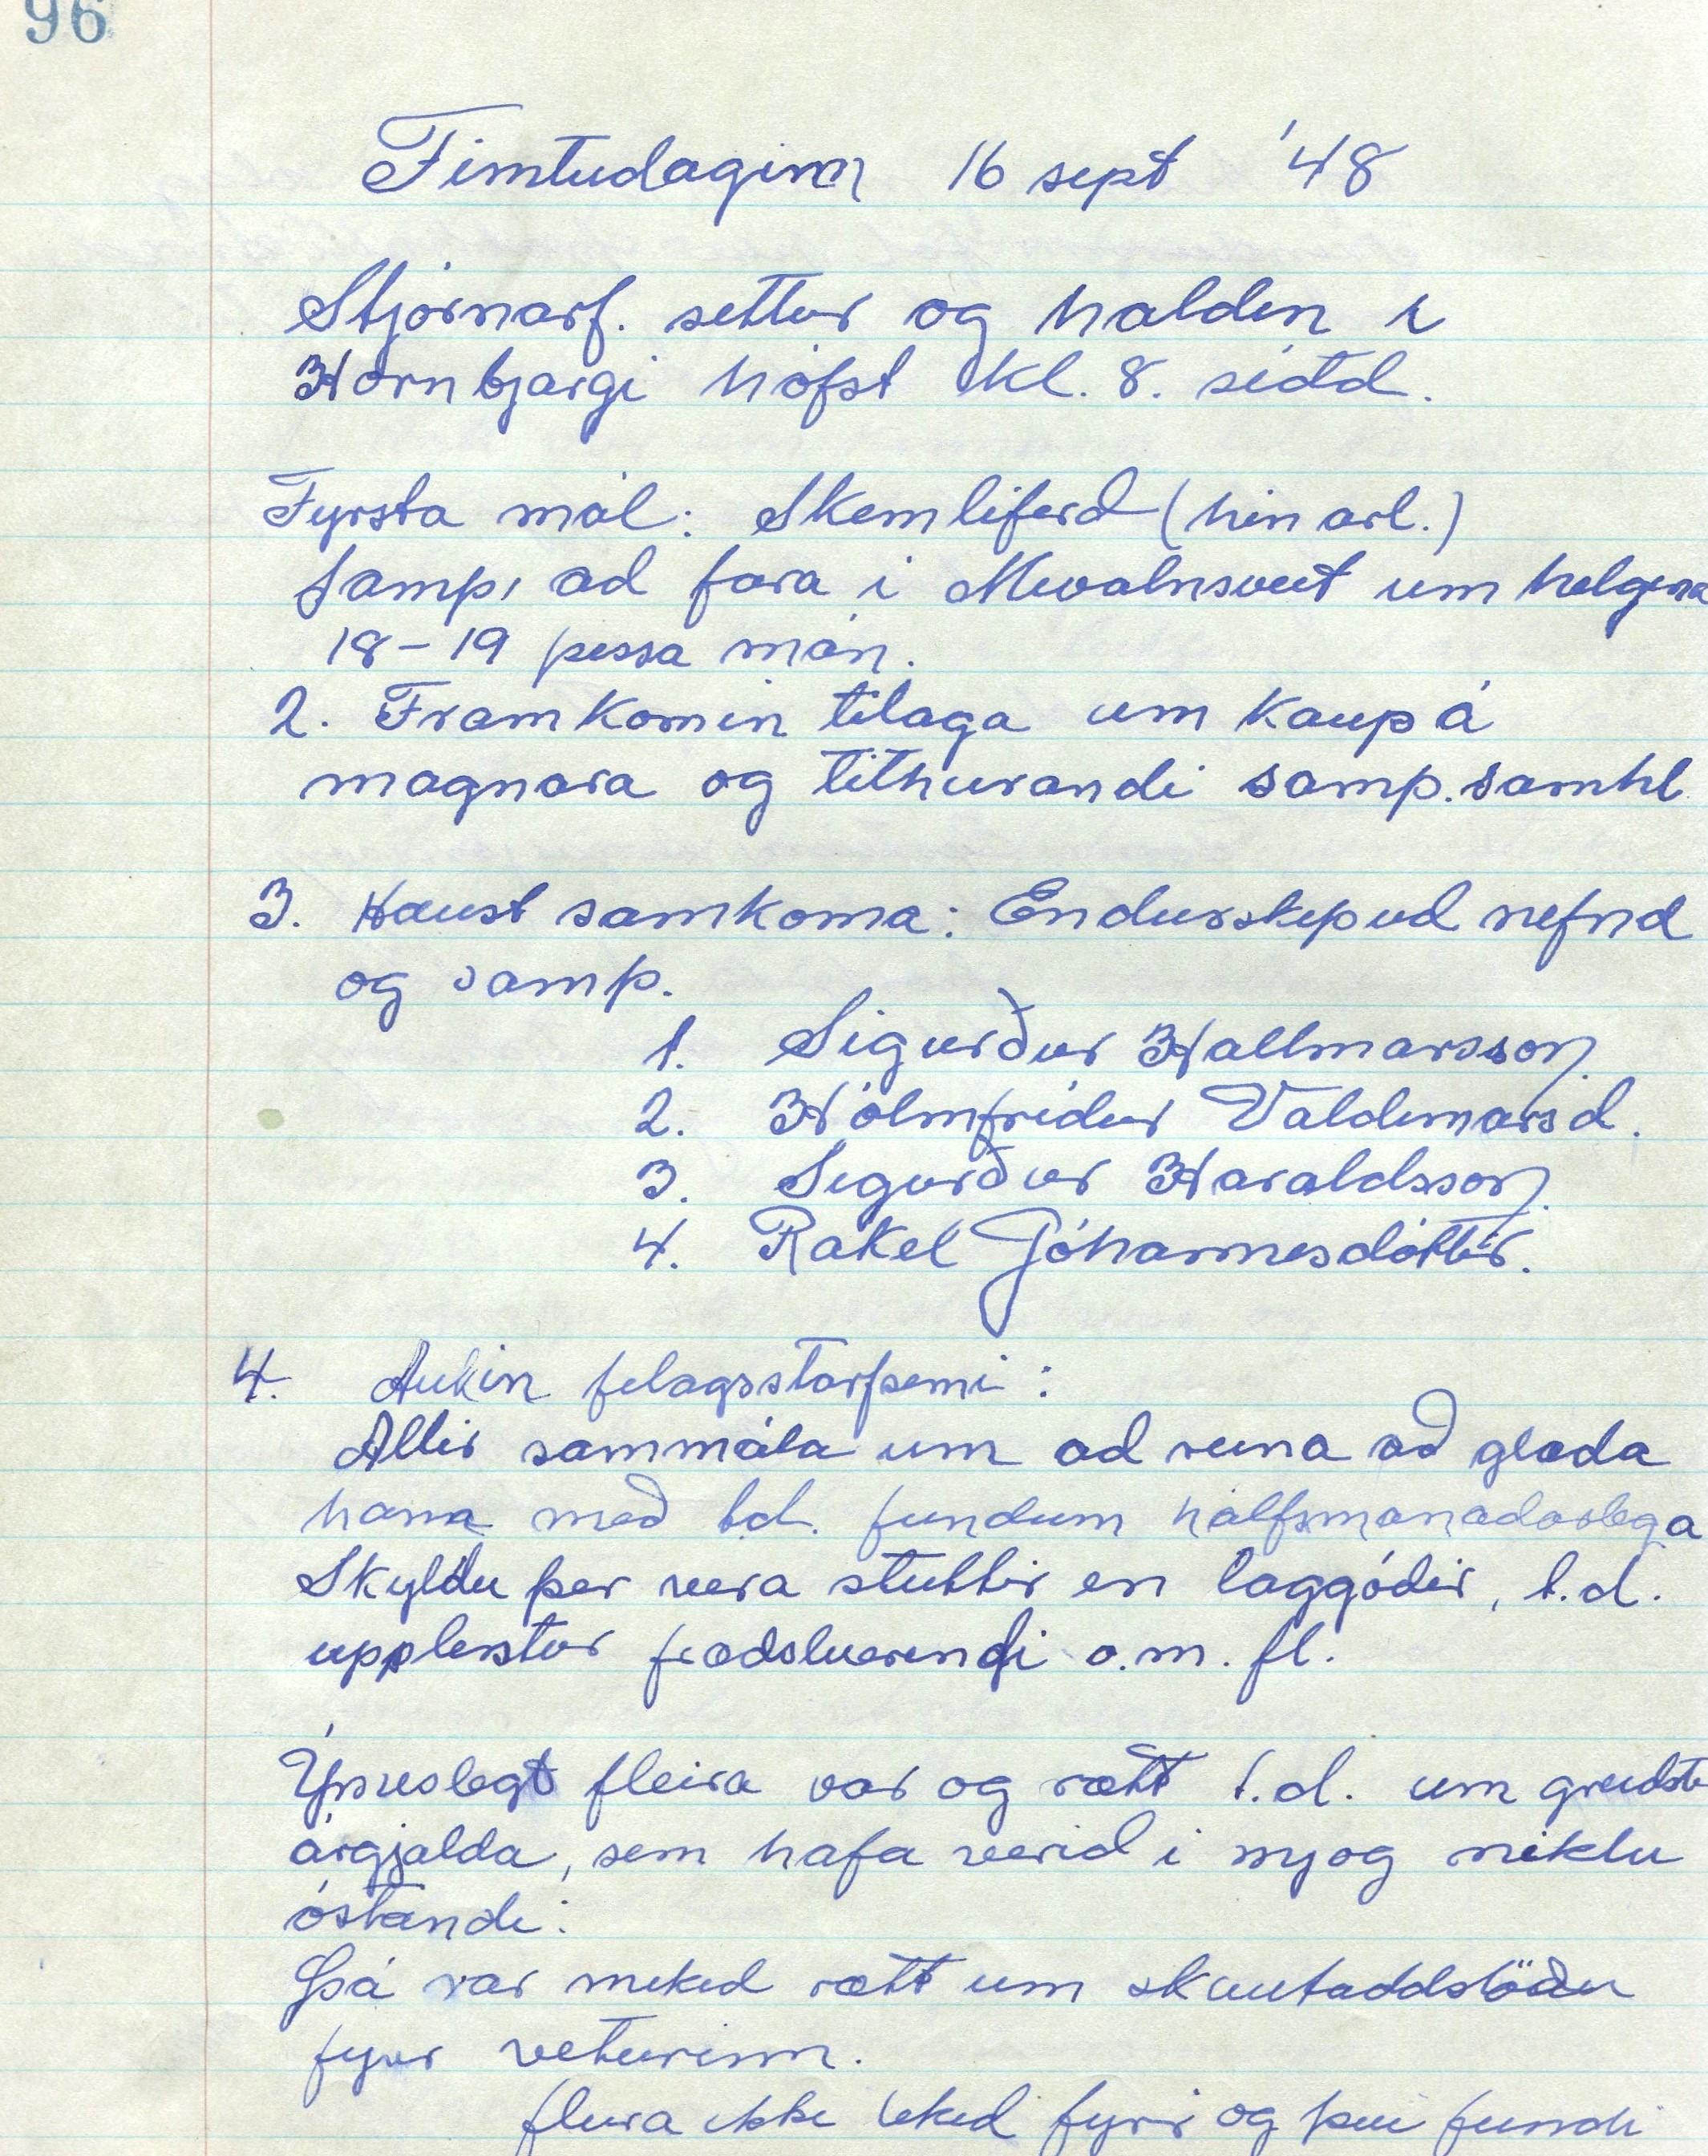 96
Fimtudaginn 16 sept '48
Stjórnarf. settur og haldin í
Hornbjargi hófst kl. 8. síðd.
Fyrsta mál: Skemliferd (hin arl.)
Samþ. ad fara i Mivatnsveit um helgina
18-19 þessa mán.
2. Framkomin tilaga um kaup á
magnara og tilhurandi samþ. samhl
3. Haust samkoma: Endurskipud nefnd
og samþ.
1. Sigurður Hallmarsson.
2. Hólmfridur Valdimarsd.
3. Sigurður Haraldsson.
4. Rakel Jóhannesdóttir.
4. Aukin felagsstarfsemi:
Allir sammála um ad reina að glæda
hana með t.d. fundum hálfsmanadarlega
Skyldu þer vera stuttir en laggódir, t.d.
upplestur frædsluerendi o.m.fl.
Ýmislegt fleira var og rætt t.d. um
árgjalda, sem hafa verid i mjog miklu
óstandi.
Þá var mikid rætt um skautaaddstöðu
fyrir veturinn.
fleira ikki tekid fyrir og þvi fundi